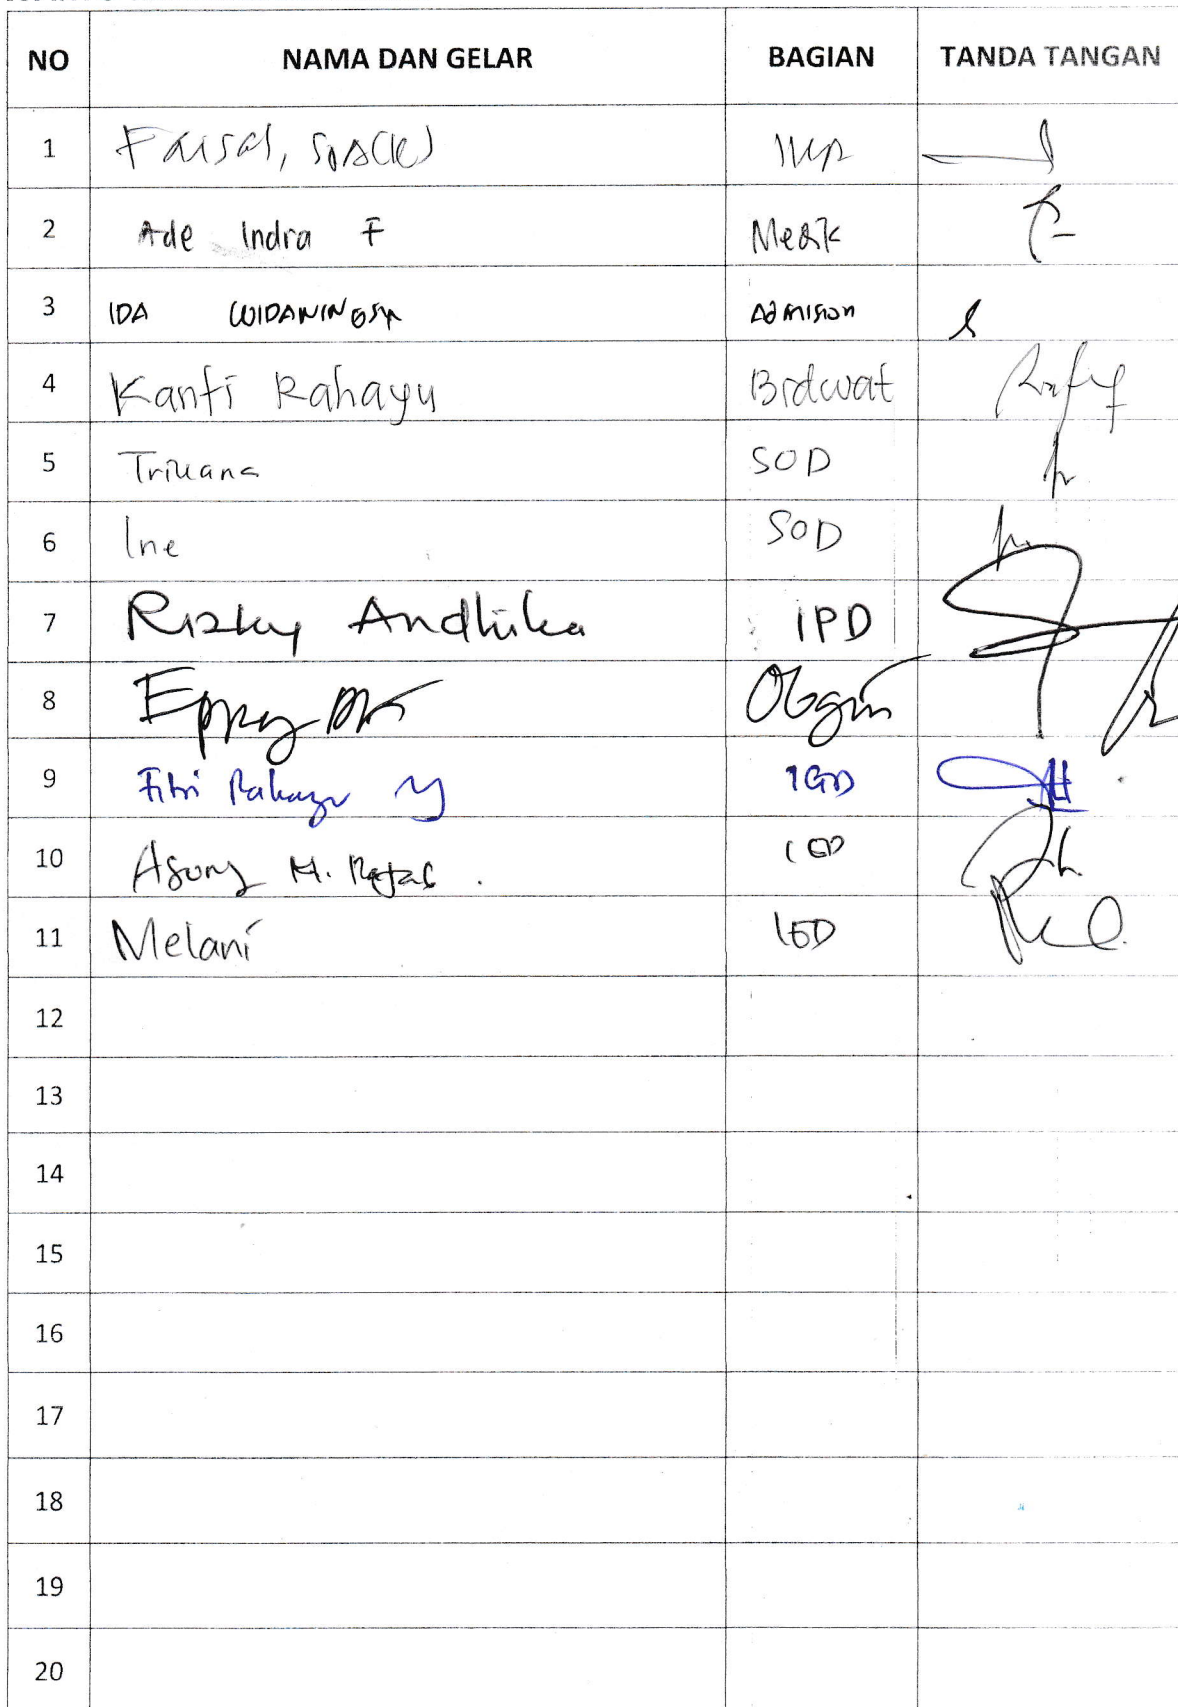 NO NAMA DAN GELAR BAGIAN TANDA TANGAN
1 Faisal, SpA(K)
2 Ade Indra F Medik
3 IDA WIDANINGSIH Admision
4 Kanti Rahayu Bidwat
5 Trikana SOD
6 Ine SOD
7 Rizky Andhika IPD
8 Eppy Obgin
9 Fitri Rahayu Y IGD
10 Agung M. IGD
11 Melani IGD
12
13
14
15
16
17
18
19
20